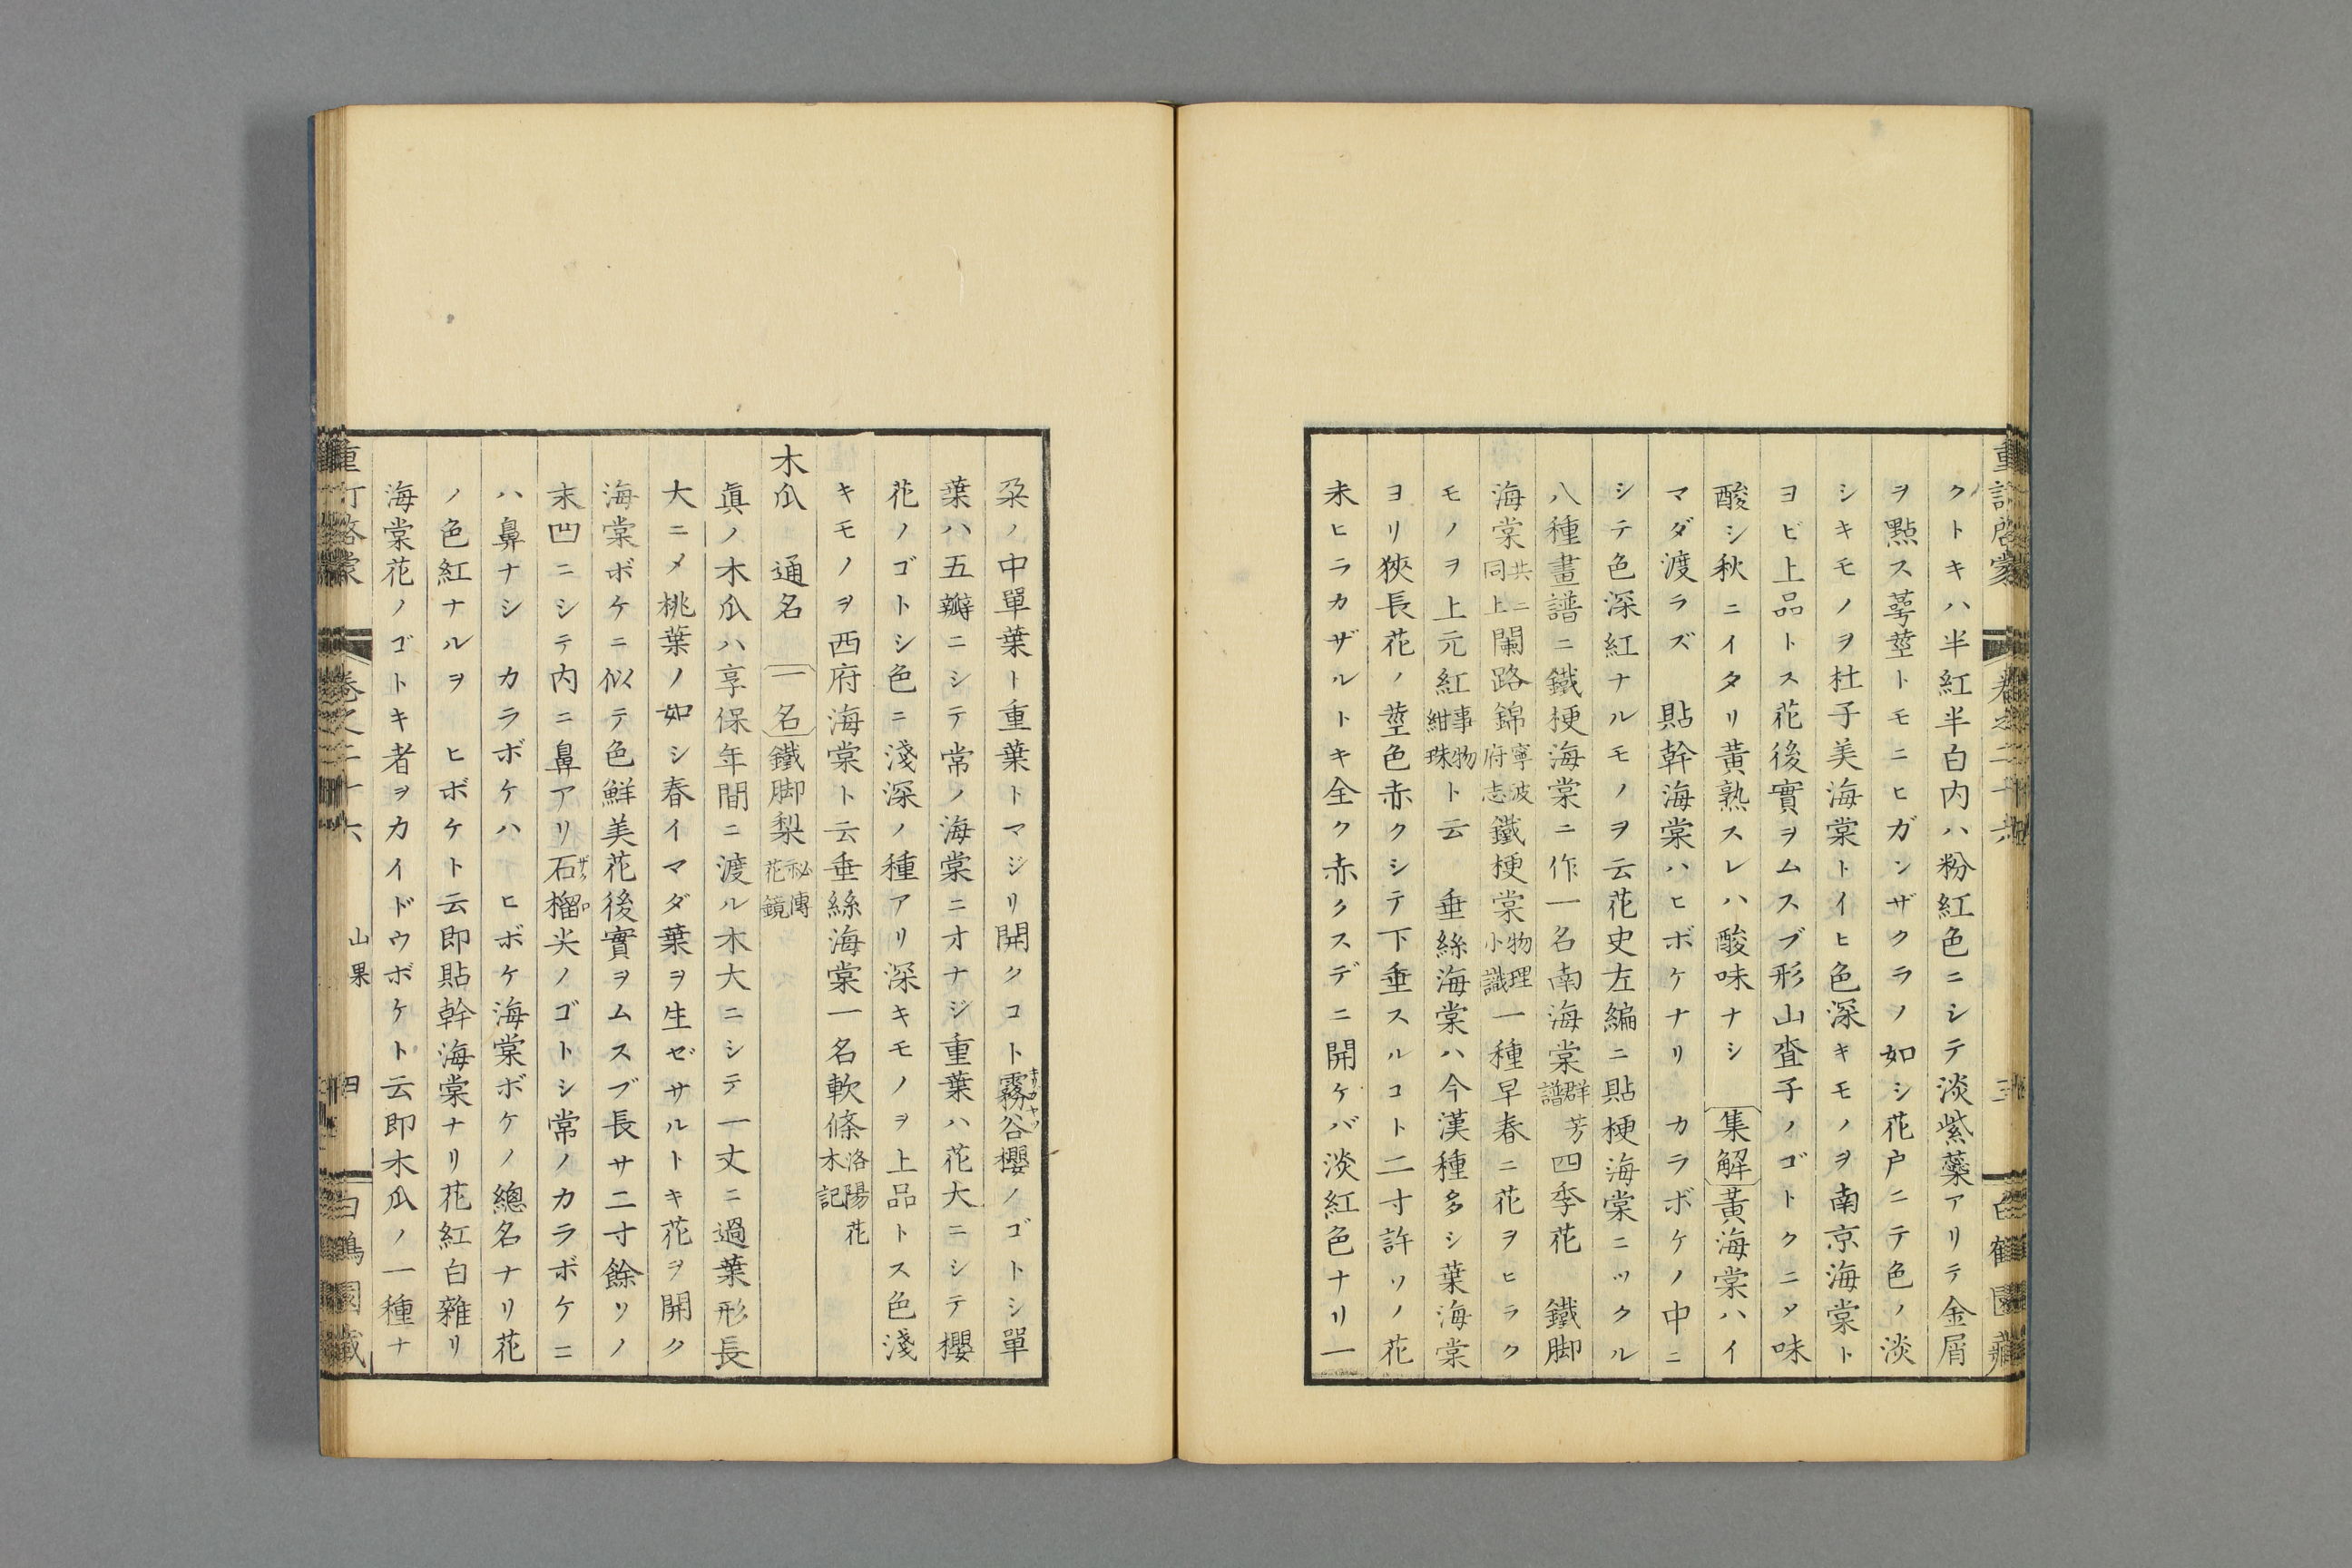 重訂啓蒙 卷之二十六 三 白鶴園藏
クトキハ半紅半白内ハ粉紅色ニシテ淡紫蘂アリテ金屑
ヲ㸃ス萼莖トモニヒガンザクラノ如シ花戸ニテ色ノ淡
シキモノヲ杜子美海棠トイヒ色深キモノヲ南京海棠ト
ヨビ上品トス花後實ヲムスブ形山査子ノゴトクニメ味
酸シ秋ニイタリ黃熟スレハ酸味ナシ 集解黃海棠ハイ
マダ渡ラズ 貼幹海棠ハヒボケナリ カラボケノ中ニ
シテ色深紅ナルモノヲ云花史左編ニ貼梗海棠ニツクル
八種畫譜ニ鐵梗海棠ニ作一名南海棠群芳譜四季花 鐵脚
海棠共ニ同上闌路錦寧波府志鐵梗棠物理小識一種早春ニ花ヲヒラク
モノヲ上元紅事物紺珠ト云 垂絲海棠ハ今漢種多シ葉海棠
ヨリ狹長花ノ莖色赤クシテ下垂スルコト二寸許ソノ花
未ヒラカザルトキ全ク赤クスデニ開ケバ淡紅色ナリ一
朶ノ中單葉ト重葉トマジリ開クコト霧谷櫻ノゴトシ單
葉ハ五瓣ニシテ常ノ海棠ニオナジ重葉ハ花大ニシテ櫻
花ノゴトシ色ニ淺深ノ種アリ深キモノヲ上品トス色淺
キモノヲ西府海棠ト云垂絲海棠一名軟條洛陽花木記
木瓜 通名 一名鐵脚梨秘傳花鏡
眞ノ木瓜ハ享保年間ニ渡ル木大ニシテ一丈ニ過葉形長
大ニメ桃葉ノ如シ春イマダ葉ヲ生ゼサルトキ花ヲ開ク
海棠ボケニ似テ色鮮美花後實ヲムスブ長サ二寸餘ソノ
末凹ニシテ内ニ鼻アリ石榴尖ノゴトシ常ノカラボケニ
ハ鼻ナシ カラボケハ ヒボケ海棠ボケノ總名ナリ花
ノ色紅ナルヲ ヒボケト云即貼幹海棠ナリ花紅白雜リ
海棠花ノゴトキ者ヲカイドウボケト云即木瓜ノ一種ナ
重訂啓蒙 卷之二十六 山果 四 白鶴園藏